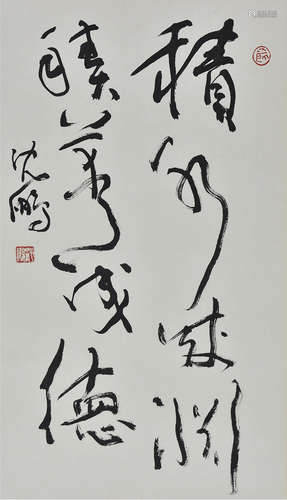 積水成淵
積善成德
沈鵬